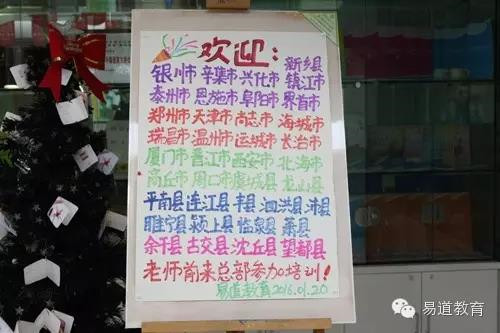 欢迎:
银川市 辛集市 兴化市 新乡县
泰州市 恩施市 阜阳市 镇江市 界首市
郑州市 天津市 尚志市 海城市
瑞昌市 温州市 运城市 长治市
厦门市 晋江市 西安市 北海市
商丘市 周口市 虞城县 龙山县
平南县 连江县 丰县 泗洪县 沛县
睢宁县 颍上县 临泉县 萧县
余干县 古交县 沈丘县 望都县
老师前来总部参加培训!
易道教育 2016.01.20
易道教育